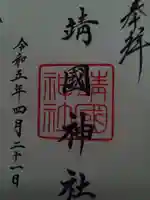 奉拝
靖國神社
靖國
神社
令和五年四月二十一日